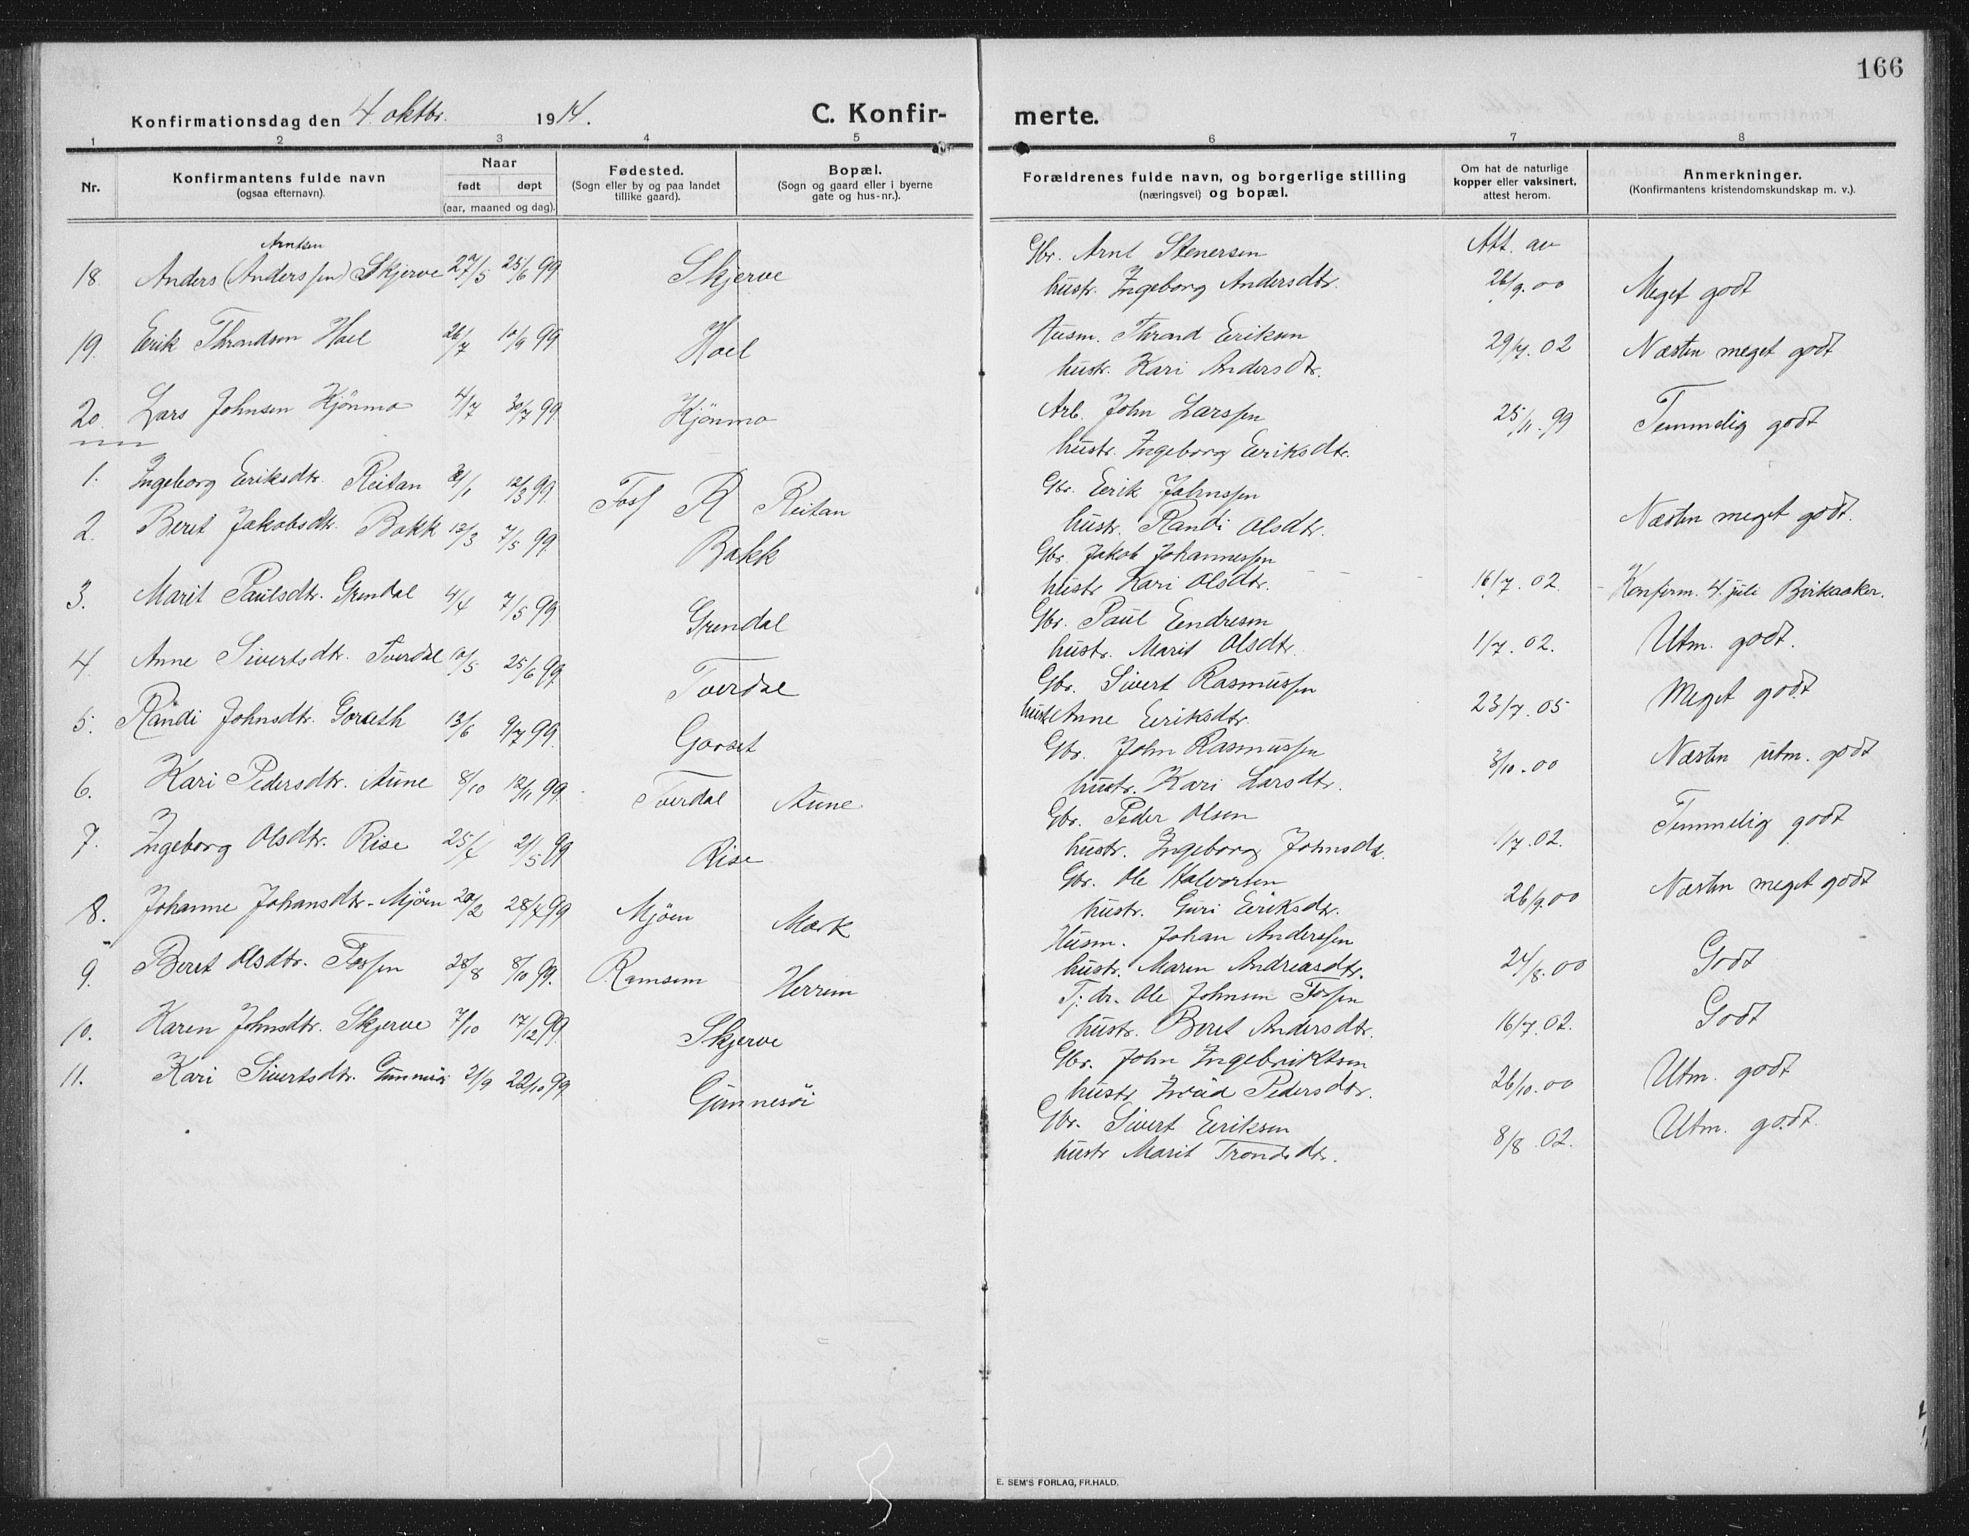 166
Konfirmationsdag den 4. oktbr. 1914.
C. Konfirmerte.
1 2 3 4 5 6 7 8
Nr.
Konfirmantens fulde navn
(ogsaa efternavn).
Naar
født døpt
(aar, maaned og dag).
Fødested.
(Sogn eller by og paa landet
tillike gaard).
Bopæl.
(Sogn og gaard eller i byerne
gate og hus-nr.).
Forældrenes fulde navn, og borgerlige stilling
(næringsvei) og bopæl.
Om hat de naturlige
kopper eller vaksinert,
attest herom.
Anmerkninger.
(Konfirmantens kristendomskundskap m. v.).
Arntsen
18. Anders (Anderssen) Skjerve 27/5 25/6 99 Skjerve
Gbr. Arnt Stenersen Att. av
hustr. Ingeborg Andersdtr. 26/9.00 Meget godt
19. Erik Throndsen Hoel 26/7 10/9 99 Hoel
Husm. Thrond Eriksen 29/7.02 Næsten meget godt
hustr. Kari Andersdtr.
20. Lars Johnsen Kjønmo 4/7 30/7 99 Kjønmo
Arb. John Larssen 25/11.99 Temmelig godt
hustr. Ingeborg Eeriksdtr.
1. Ingeborg Eeriksdtr. Reitan 12/3 99. Foss R Reitan
Gbr. Eerik Johnssen
hustr. Randi Olsdtr. Næsten meget godt.
2. Beret Jakobsdtr. Bakk 12/3 7/5 99. Bakk
Gbr. Jakob Johannessen
hustr Kari Olsdtr. 16/7.02. - Konfirm. 4. juli Birkaaker.
3. Marit Paulsdtr. Grendal 4/4 7/5 99. Grendal
Gbr. Paul Eendresen
hustr. Marit Olsdtr. 1/7.02. Utm. godt.
4. Anne Sivertsdtr. Tverdal 10/5 25/6 99. Tverdal
Gbr. Sivert Rasmussen
hustr. Anne Eeriksdtr. 23/7.05 Meget godt
5. Randi Johnsdtr. Gorseth 13/6 9/7 99. Gorset
Gbr. John Rasmussen
hustr. Kari Larsdtr. 3/10.00 Næsten utm. godt
6. Kari Pedersdtr. Aune 8/10 12/11 99. Tverdal Aune
Gbr. Peder Olsen
hustr. Ingeborg Johnsdtr. 1/7.02. Temmelig godt
7. Ingeborg Olsdtr. Rise 25/4 21/5 99 Rise
Gbr. Ole Halvorsen
hustr. Guri Eeriksdtr. 26/9.00 Næsten meget godt
8. Johanne Johansdtr. Mjøen 20/2 28/4 99 Mjøen Mork
Husm. Johan Anderssen
hustr. Maren Andreasdtr. 24/8.00 Godt
9. Beret Olsdtr. Fossen 28/8 8/10 99. Ramsem Herrem
Tj: dr. Ole Johnsen Fossen
hustr. Beret Andersdtr. 16/7.02. Godt
10. Karen Johnsdtr. Skjerve 7/10 17/12 99 Skjerve
Gbr. John Ingebriktsen
hustr Pedersdtr. 26/10.00 Utm. godt
11. Kari Sivertsdtr. Gunnesøi 21/9 22/10 99 Gunnesøi
Gbr. Sivert Eeriksen
hustr Marit Trondsdtr. 8/8.02. Utm. godt.
E. SEM'S FORLAG, FR.HALD.